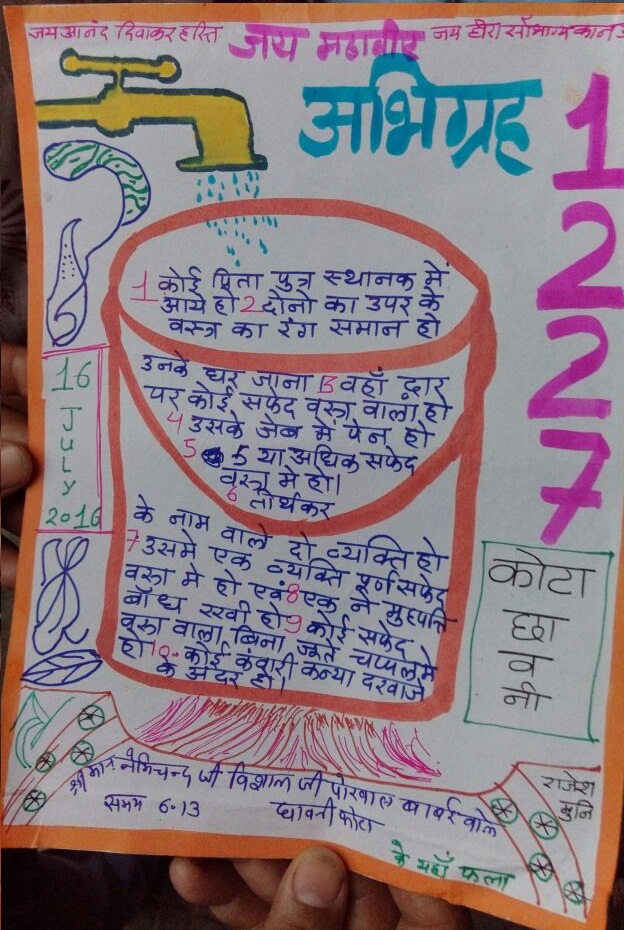 जय आनंद दिवाकर हस्ति जय महावीर जय हीरा सौभाग्य कान
अभिग्रह
1227
1 कोई पिता पुत्र स्थानक में
आये हो 2 दोनो का उपर के
वस्त्र का रंग समान हो
उनके घर जाना 3 वहाँ द्वार
पर कोई सफेद वस्त्र वाला हो
4 उसके जेब में पेन हो
5 5 या अधिक सफेद
वस्त्र मे हो।
6 तीर्थकर
के नाम वाले दो व्यक्ति हो
7 उसमे एक व्यक्ति पूर्ण सफेद
वस्त्र मे हो एवं 8 एक ने मुहपत्ति
बाँध रखी हो 9 कोई सफेद
वस्त्र वाला बिना जूते चप्पल मे
हो 10. कोई कंवारी कन्या दरवाजे
के अंदर हो।
16
JULY
2016
कोटा
छा
व
नी
श्री मान नेमिचन्द जी विशाल जी पोरवाल बाबई वाले
समय 6.13 छावनी कोटा
के यहाँ फला
राजेश
मुनि